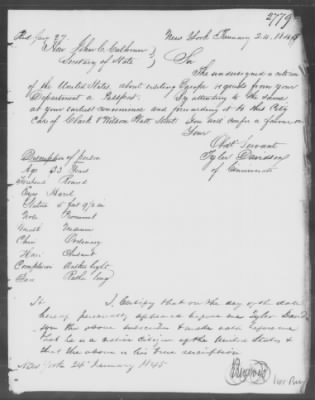 2779
Recd. Jany 27 New York January 24, 1845
Hon John C. Calhoun
Secretary of State
Sir
The undersigned a citizen
of the United States about visiting Europe requests from your
Department a Passport. By attending to the same
at your earliest convenience and forwarding it to this City
Care of Clark & Wilson Platt Street You will confer a favour on
Your
Obdt Servant
Tyler Davidson
of Cincinnati
Description of person
Age 33 Years
Forehead Round
Eyes Hazel
Stature 5 feet 9 1/2 in
Nose Prominent
Mouth Medium
Chin Ordinary
Hair Auburn
Complexion Rather light
Face Rather long
I Certify that on the day of the date
hereof personally appeared before me Tyler David-
son the above subscriber & made oath before me
that he is a native Citizen of the United States &
that the above is his true description
New York 24 January 1845